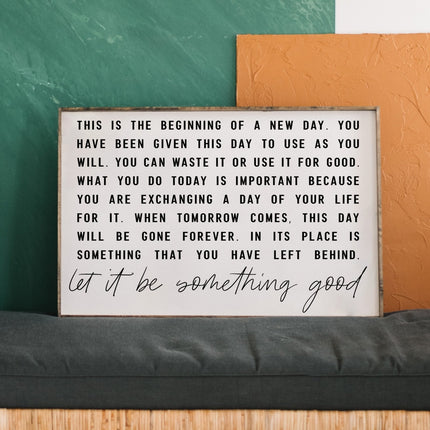 THIS IS THE BEGINNING OF A NEW DAY. YOU
HAVE BEEN GIVEN THIS DAY TO USE AS YOU
WILL. YOU CAN WASTE IT OR USE IT FOR GOOD.
WHAT YOU DO TODAY IS IMPORTANT BECAUSE
YOU ARE EXCHANGING A DAY OF YOUR LIFE
FOR IT. WHEN TOMORROW COMES, THIS DAY
WILL BE GONE FOREVER. IN ITS PLACE IS
SOMETHING THAT YOU HAVE LEFT BEHIND.
let it be something good